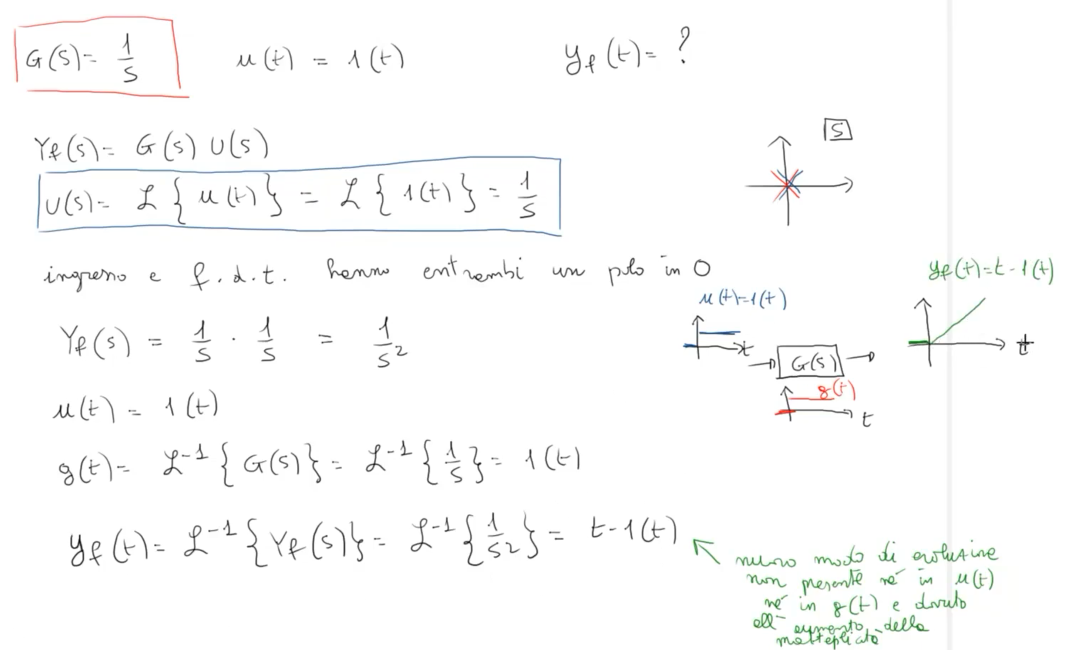 G(s)= 1/s u(t) = 1(t) yf(t)= ?
Yf(s)= G(s) U(s)
S
U(s)= ℒ{u(t)} = ℒ{1(t)} = 1/s
ingresso e f.d.t. hanno entrambi un polo in 0
yf(t)=t-1(t)
u(t)=1(t)
t
t
Yf(s) = 1/s · 1/s = 1/s²
G(s)
g(t)
t
u(t) = 1(t)
g(t)= ℒ⁻¹{G(s)}= ℒ⁻¹{1/s}= 1(t)
yf(t)= ℒ⁻¹{Yf(s)}= ℒ⁻¹{1/s²}= t-1(t)
nuovo modo di evoluzione
non presente né in u(t)
né in g(t) e dovuto
all' aumento della
molteplicità